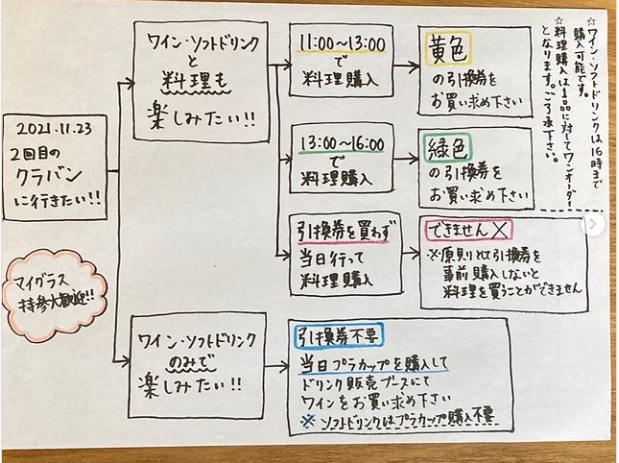 2021.11.23
2回目の
クラバン
に行きたい!!
マイグラス
持参大歓迎!!
ワイン・ソフトドリンク
と
料理も
楽しみたい!!
11:00〜13:00
で
料理購入
黄色
の引換券を
お買い求め下さい
13:00〜16:00
で
料理購入
緑色
の引換券を
お買い求め下さい
引換券を買わず
当日行って
料理購入
できません×
※原則として引換券を
事前購入しないと
料理を買うことができません
ワイン・ソフトドリンク
のみで
楽しみたい!!
引換券不要
当日プラカップを購入して
ドリンク販売ブースにて
ワインをお買い求め下さい
※ソフトドリンクはプラカップ購入不要
☆ワイン・ソフトドリンクは16時まで
購入可能です。
☆料理購入は1品に対してワンオーダー
となります。ご了承下さい。